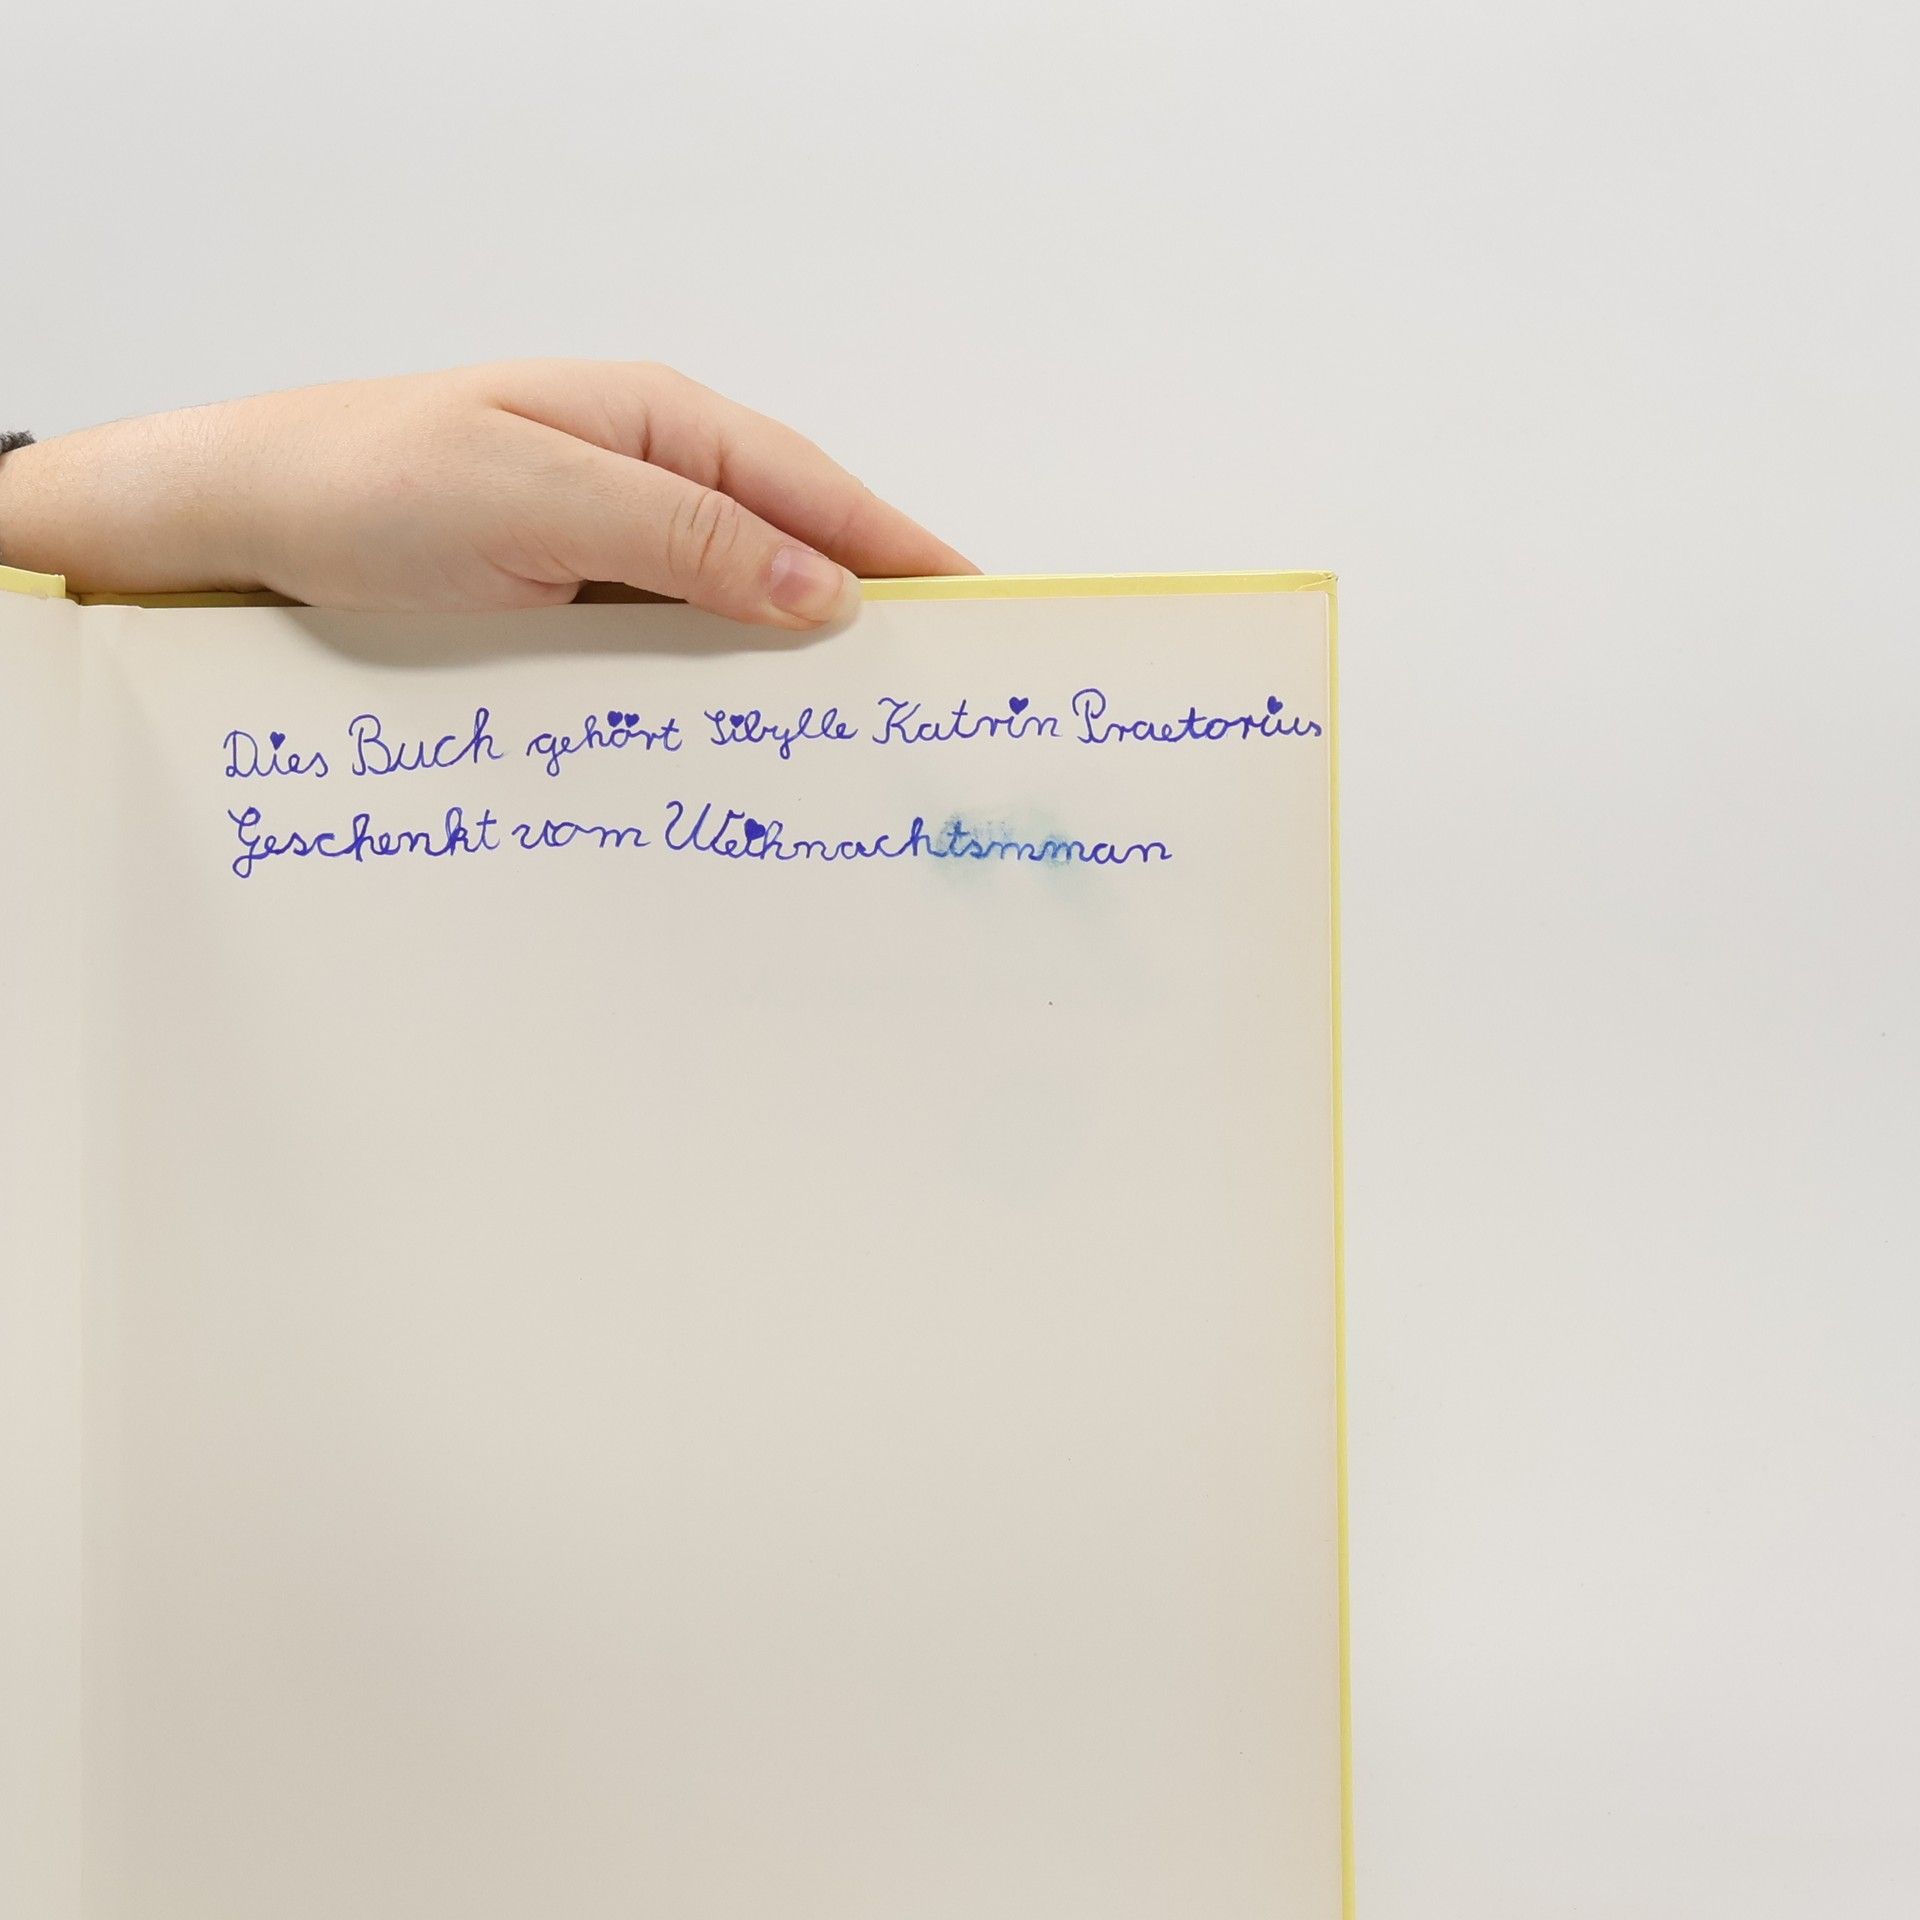 Dies Buch gehört Sibylle Katrin Praetorius
Geschenkt vom Weihnachtsmman